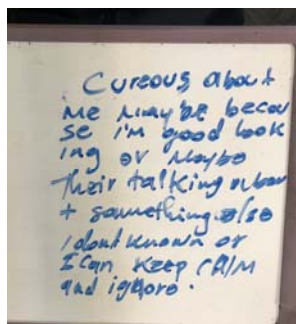 Cureous about
me maybe becou
se i'm good look
ing or maybe
their talking abou
t saumething else
I dont known or
I can keep calm
and ignore.